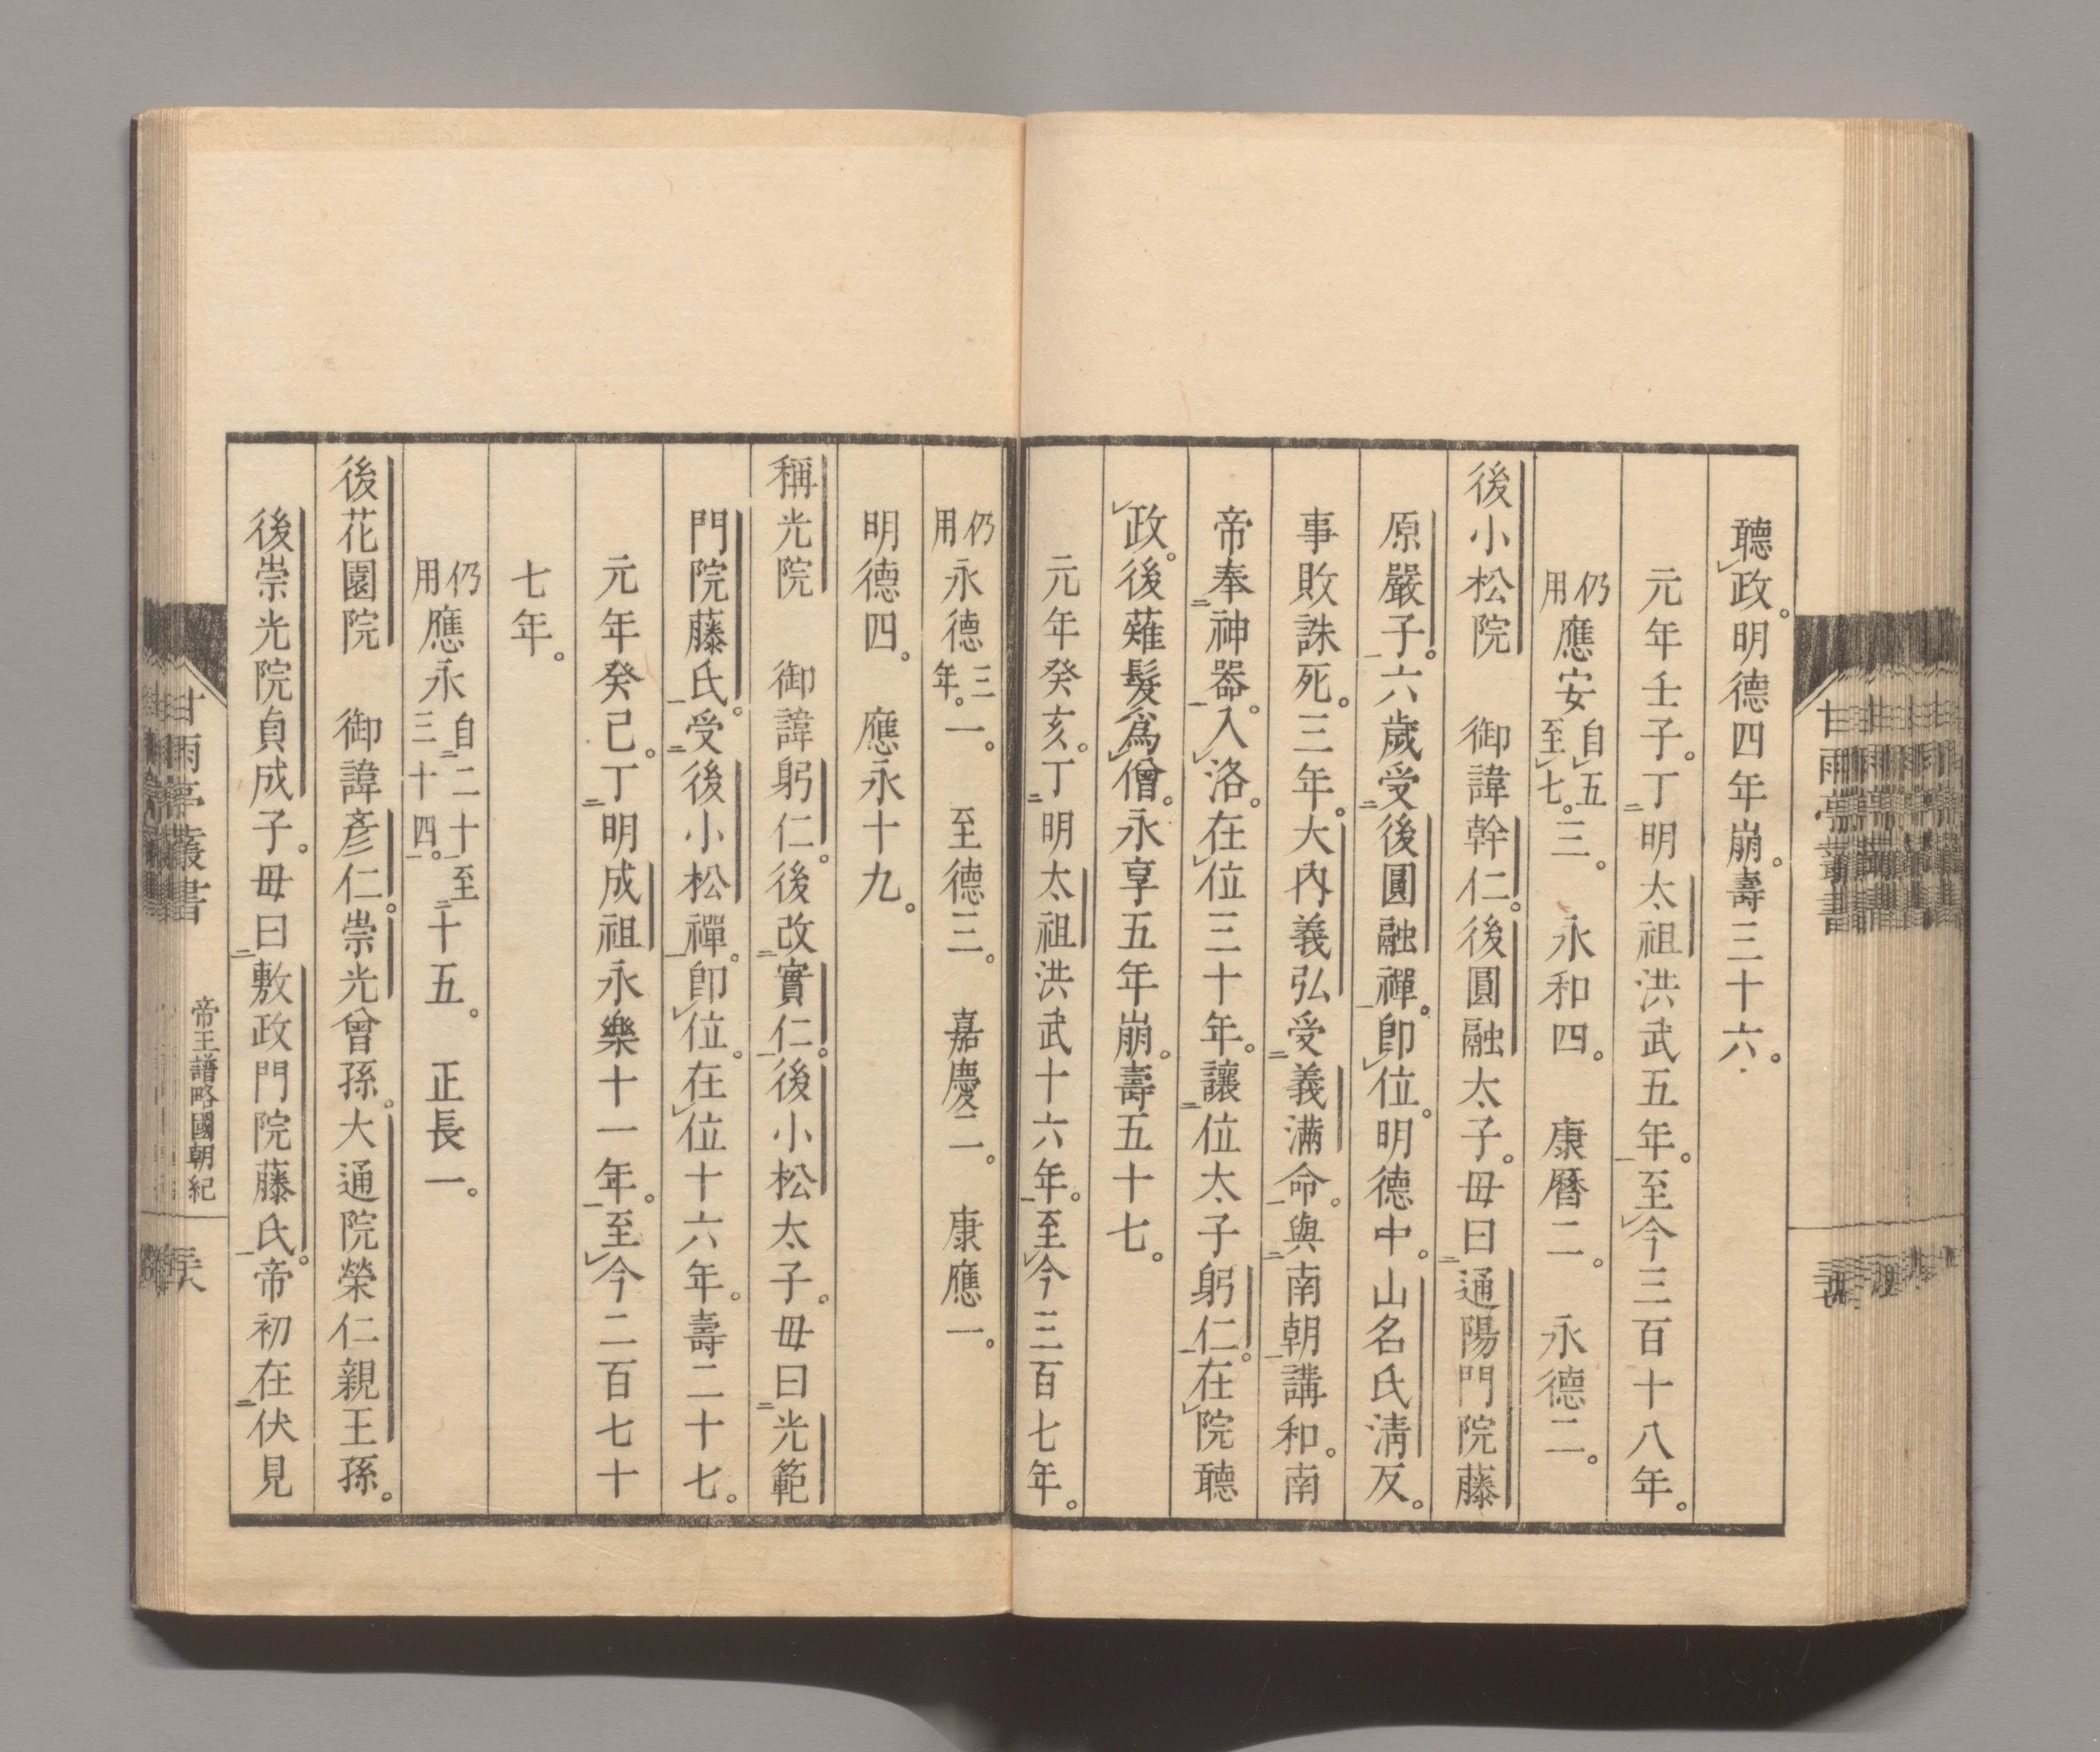 聽政。明德四年崩。壽三十六。
元年壬子。丁明太祖洪武五年。至今三百十八年。
仍用應安自五至七。三。　永和四。　康曆二。　永德二。
後小松院　御諱幹仁。後圓融太子。毋曰通陽門院藤
原嚴子。六歲受後圓融禪。卽位。明德中。山名氏淸反。
事敗誅死。三年。大內義弘受義滿命。與南朝講和。南
帝奉神器。入洛。在位三十年。讓位太子躬仁。在院聽
政。後薙髮爲僧。永享五年崩。壽五十七。
元年癸亥。丁明太祖洪武十六年。至今三百七年。
仍用永德三年。一。　至德三。　嘉慶二。　康應一。
明德四。　應永十九。
稱光院　御諱躬仁。後改實仁。後小松太子。毋曰光範
門院藤氏。受後小松禪。卽位。在位十六年。壽二十七。
元年癸巳。丁明成祖永樂十一年。至今二百七十
七年。
仍用應永自二十至三十四。十五。　正長一。
後花園院　御諱彥仁。崇光曾孫。大通院榮仁親王孫。
後崇光院貞成子。毋曰敷政門院藤氏。帝初在伏見
甘雨亭叢書
帝王譜略國朝紀